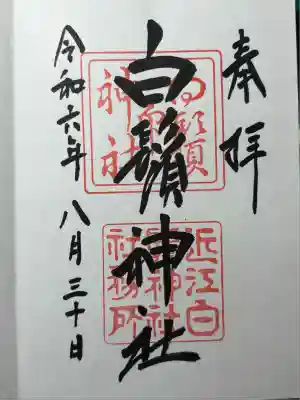 奉拝
白鬚神社
白鬚神社
近江白鬚神社社務所
令和六年八月三十日